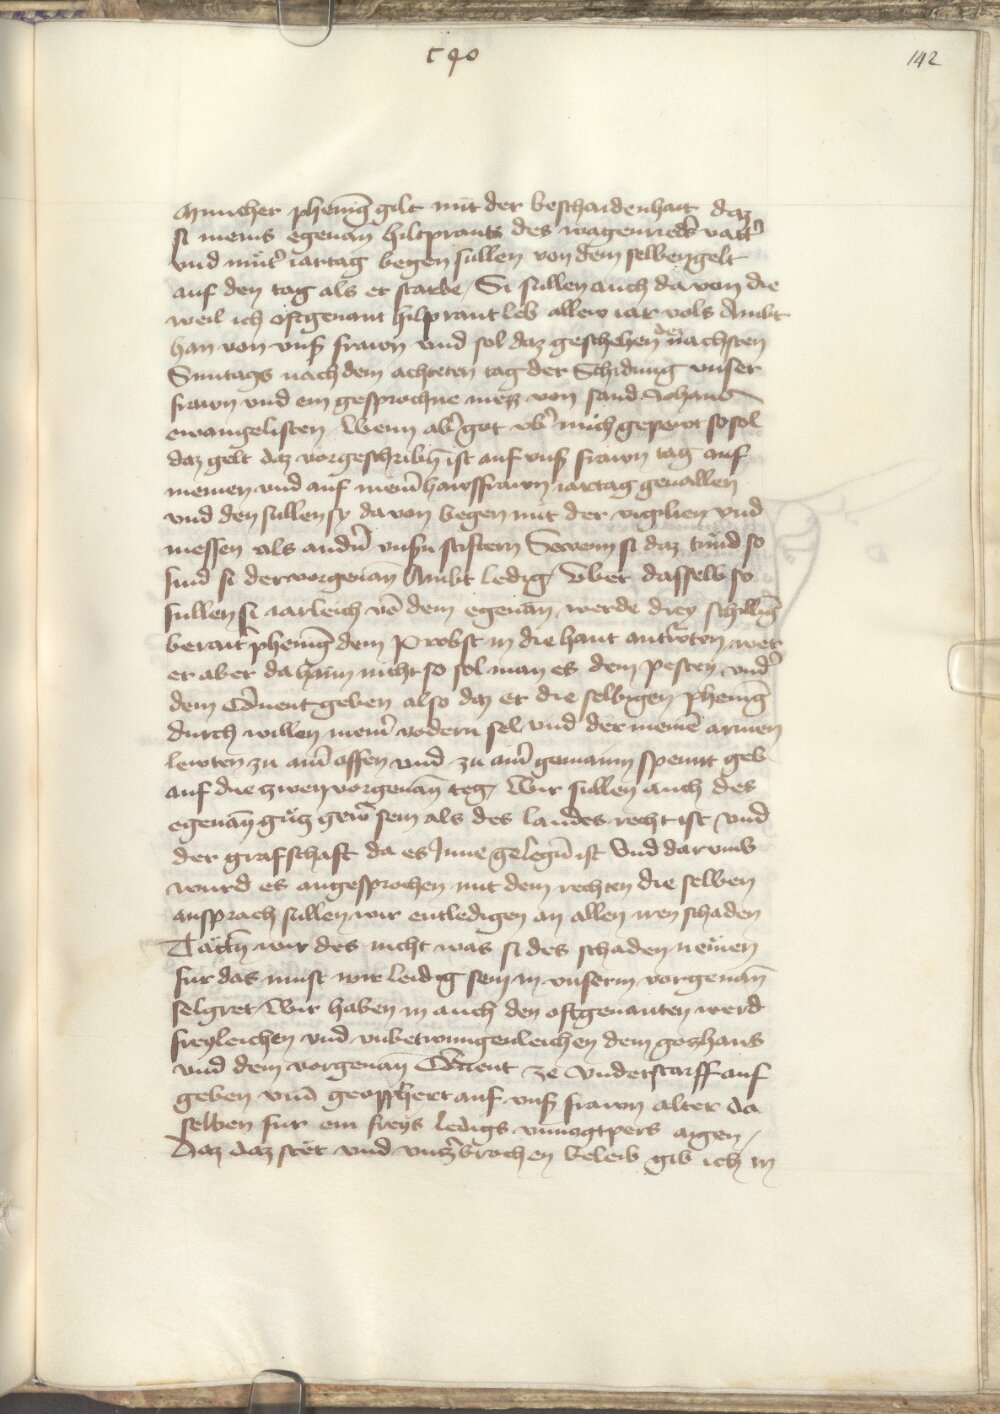 c 90
142
Muncher phening gilt mit der beschaidenhait daz
si meins egenan̄ hiltprants des magenreck̄ vatt̉
vnd mut̉ iartag begen sullen von dem selben gelt
auf den tag als er starbe / Si sullen auch da von die
weil ich oftgenant hilprant leb allew iar vols Ambt
han von vnß frawn vnd sol daz geschehen des nachsten
Sunntags nach dem achteten tag der Schidung vnser
frawn vnd ein gesprochne mezz von sand Johans
ewangelisten Wenn ab̉ got vb̉ mich gepewt so sol
daz gelt daz vorgeschribn̄ ist auf vnß frawn tag auf
meinen vnd auf mein̄ hawsfrawn iartag geuallen
vnd den sullen sy da von begen mit der vigilien vnd
messen als andn̄ vnßn stiftern Sewenn si daz tund so
sind si der vorgenan̄ Ambt ledig / Vber dasselb so
sullen si iarleich vō dem egenan̄ werde drey schilliḡ
berait̉ pheniḡ dem Probst in die hant antwrtn wer
er aber da haim nicht so sol man es dem pesten vnd̉
dem Cōuent geben also daz er die selbigen pheniḡ
durch willen mein̄ vodern sel vnd der meinē armen
lewten zu ain̄ offen vnd zu ain̄ gemainn spennt geb
auf die zwen vorgenan̄ teg / Wir sullen auch des
egenan̄ gutz gewer sein als des landes recht ist vnd
der grafschaft da es Jnne gelegn̄ ist Vnd dar vmb
wurd es angesprochen mit dem rechten die selben
ansprach sullen wir entledigen an allen iren schaden
Tättn̄ wir des nicht was si des schaden nemen
fur das must wir leidig sein in vnserm vorgenan̄
selgret / Wir haben in auch den oftgenanten werd
freyleichen vnd vnbetwungenleichen dem gozhaus
vnd dem vorgenan̄ Cōuent ze vnderstarff auf
geben vnd geopphert auf vnß frawn alter da
selben fur ein freys ledigs vnuogtpers aigen /
Daz daz stet vnd vnzbrochen beleib gib ich in